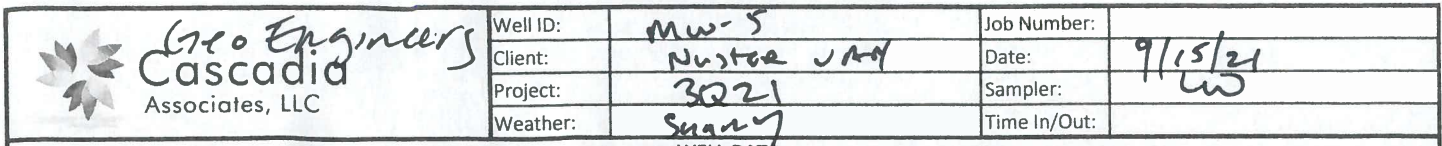 Geo Engineers
Cascadia
Associates, LLC
Well ID: MW-5 Job Number:
Client: NuStar Date: 9/15/21
Project: 3Q21 Sampler:
Weather: Sunny Time In/Out: